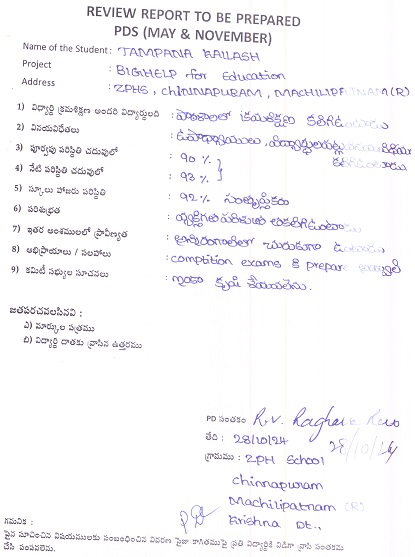 REVIEW REPORT TO BE PREPARED
PDS (MAY & NOVEMBER)
Name of the Student : TAMPANA KAILASH
Project : BIGHELP for Education
Address : ZPHS, ChINNAPURAM, MACHILIPATNAM (R)
1) విద్యార్థి క్రమశిక్షణ అందరి విద్యార్థులది : పాఠశాలలో క్రమశిక్షణ కలిగి
2) వినయవిధేతలు : ఉపాధ్యాయులు,
కలిగి
3) పూర్వపు పరిస్థితి చదువులో : 90 %
4) నేటి పరిస్థితి చదువులో : 93 %
5) స్కూలు హాజరు పరిస్థితి : 92% సంతృప్తికరం
6) పరిశుభ్రత : వ్యక్తిగత
7) ఇతర అంశములలో ప్రావీణ్యత : చురుకుగా
8) అభిప్రాయాలు / సలహాలు : comption exams కి prepare
9) కమిటీ సభ్యుల సూచనలు : ఇంకా కృషి చేయవలెను.
జతపరచవలసినవి :
ఎ) మార్కుల పత్రము
బి) విద్యార్థి దాతకు వ్రాసిన ఉత్తరము
PD సంతకం : R.V. Raghava Rao
తేది : 28/10/24 28/10/24
గ్రామము : ZPH School
chinnapuram
Machilipatnam (R)
Krishna Dt.,
గమనిక :
పైన సూచించిన విషయములకు సంబంధించిన వివరణ పైజా కాగితముపై ప్రతి విద్యార్థికి విడిగా వ్రాసి సంతకము
చేసి పంపవలెను.